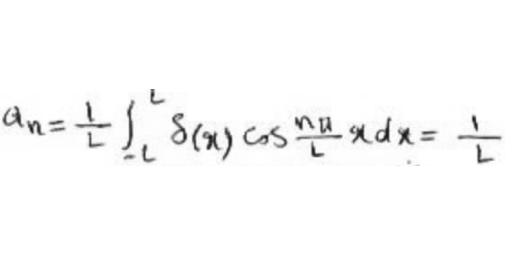 a_n = \frac{1}{L} \int_{-L}^{L} \delta(x) \cos \frac{n\pi}{L} x dx = \frac{1}{L}